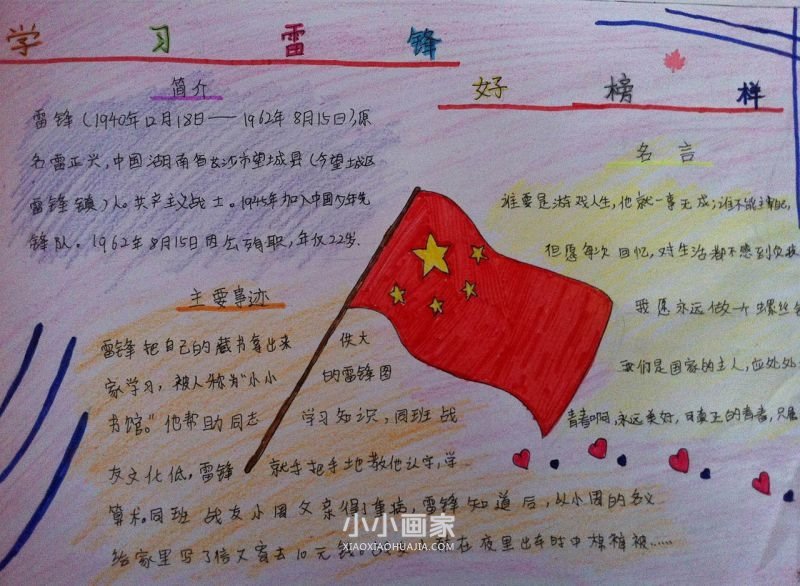 学习雷锋
好榜样
简介
雷锋(1940年12月18日——1962年8月15日),原
名雷正兴,中国湖南省长沙市望城县(今望城区
雷锋镇)人。共产主义战士。1945年加入中国少年先
锋队。1962年8月15日因公殉职,年仅22岁.
主要事迹
雷锋把自己的藏书拿出来 供大
家学习,被人称为“小小 的雷锋图
书馆。”他帮助同志 学习知识,同班战
友文化低,雷锋 就手把手地教他认字,学
算术。同班战友小周父亲得了重病,雷锋知道后,以小周的名义
给家里写了信又寄去10元 在夜里出车时中棉裤被......
名言
谁要是游戏人生,他就一事无成;谁不能主宰自己,
但愿每次回忆,对生活都不感到负疚
我愿永远做一个螺丝
我们是国家的主人,应处处
青春啊,永远美好,可真正的青春,只
小小画家
XIAOXIAOHUAJIA.COM